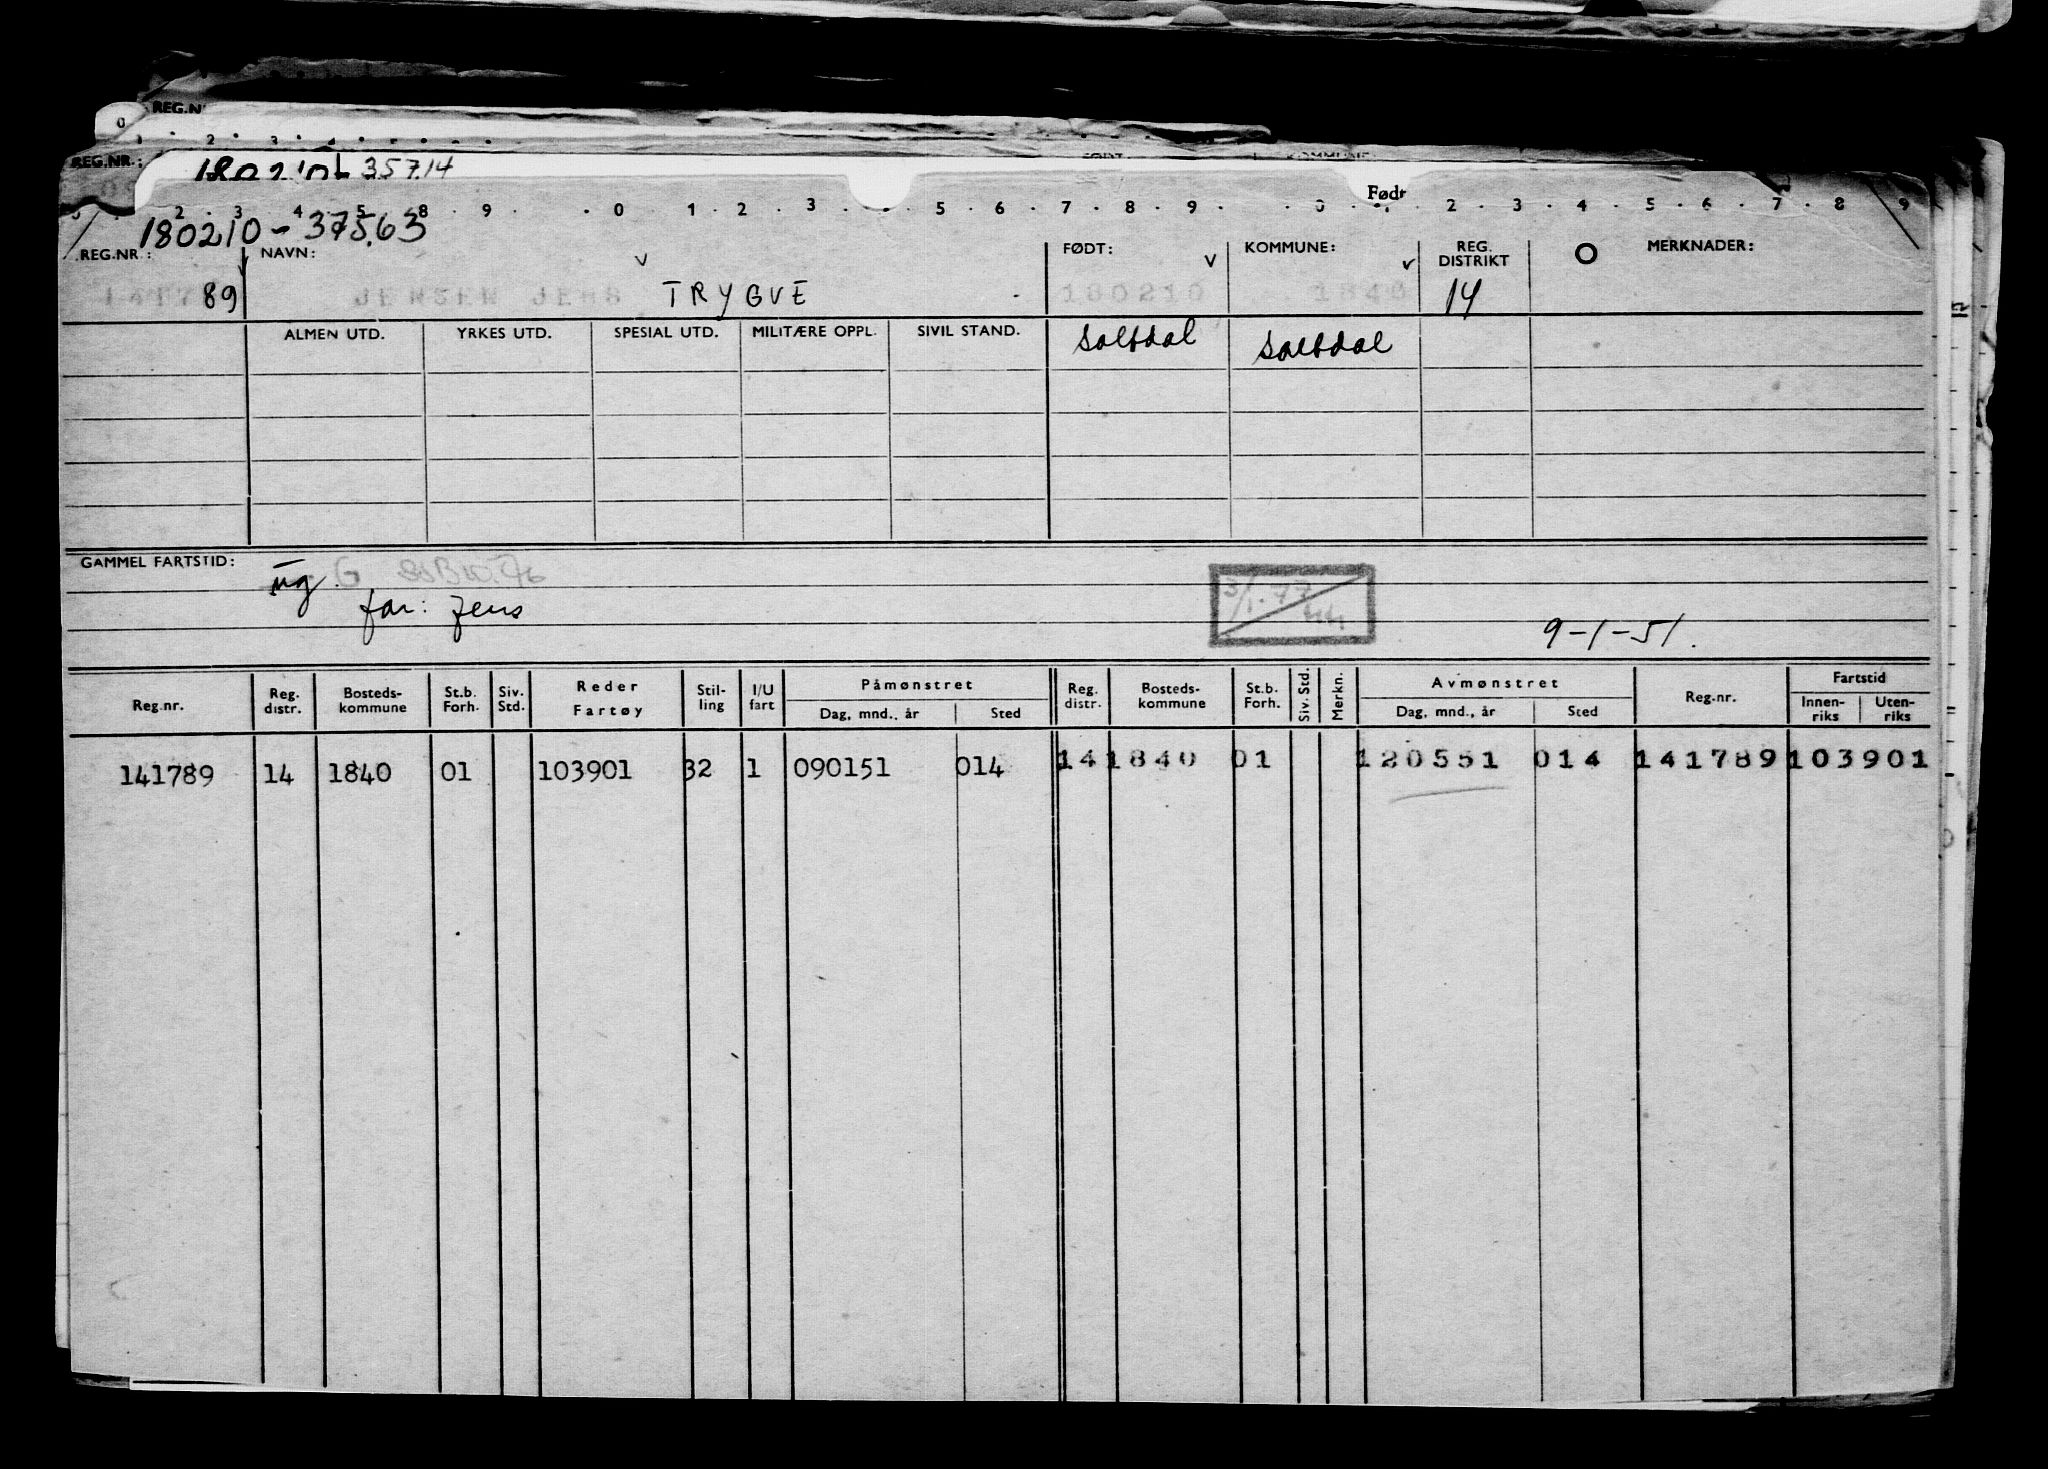 REG.N
0 1 . 2 . 3 . 4
REG.NR.: FØDT: KOMMUNE:
35714
Født
2 . 3 4 5 8 . 9 . . 0 1 . 2 . 3 . . 5 . 6 . 7 . 8 . 9 . 0 . 2 . 3 . 4 . 5 . 6 . 7 . 8 9
180210-37563
REG.NR.: NAVN: FØDT: KOMMUNE: REG. DISTRIKT O MERKNADER:
141789 JENSEN JENS TRYGVE 180210 1840 14
ALMEN UTD. YRKES UTD. SPESIAL UTD. MILITÆRE OPPL. SIVIL STAND. Saltdal Saltdal
GAMMEL FARTSTID: ug G
far: Jens 3/1-77
9-1-51.
Reg.nr. Reg. distr. Bosteds-kommune St.b. Forh. Siv. Std. Reder Fartøy Stil-ling I/U fart Påmønstret Dag, mnd., år Sted Reg. distr. Bosteds-kommune St.b. Forh. Siv. Std. Merkn. Avmønstret Dag, mnd., år Sted Reg.nr. Fartstid Innen-riks Uten-riks
141789 14 1840 01 103901 32 1 090151 014 14 1840 01 120551 014 141789 103901